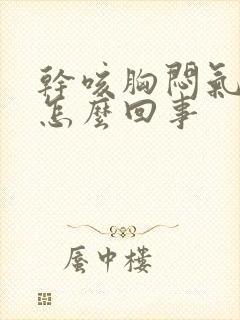 幹咳胸悶氣
怎麼回事
蜃中樓